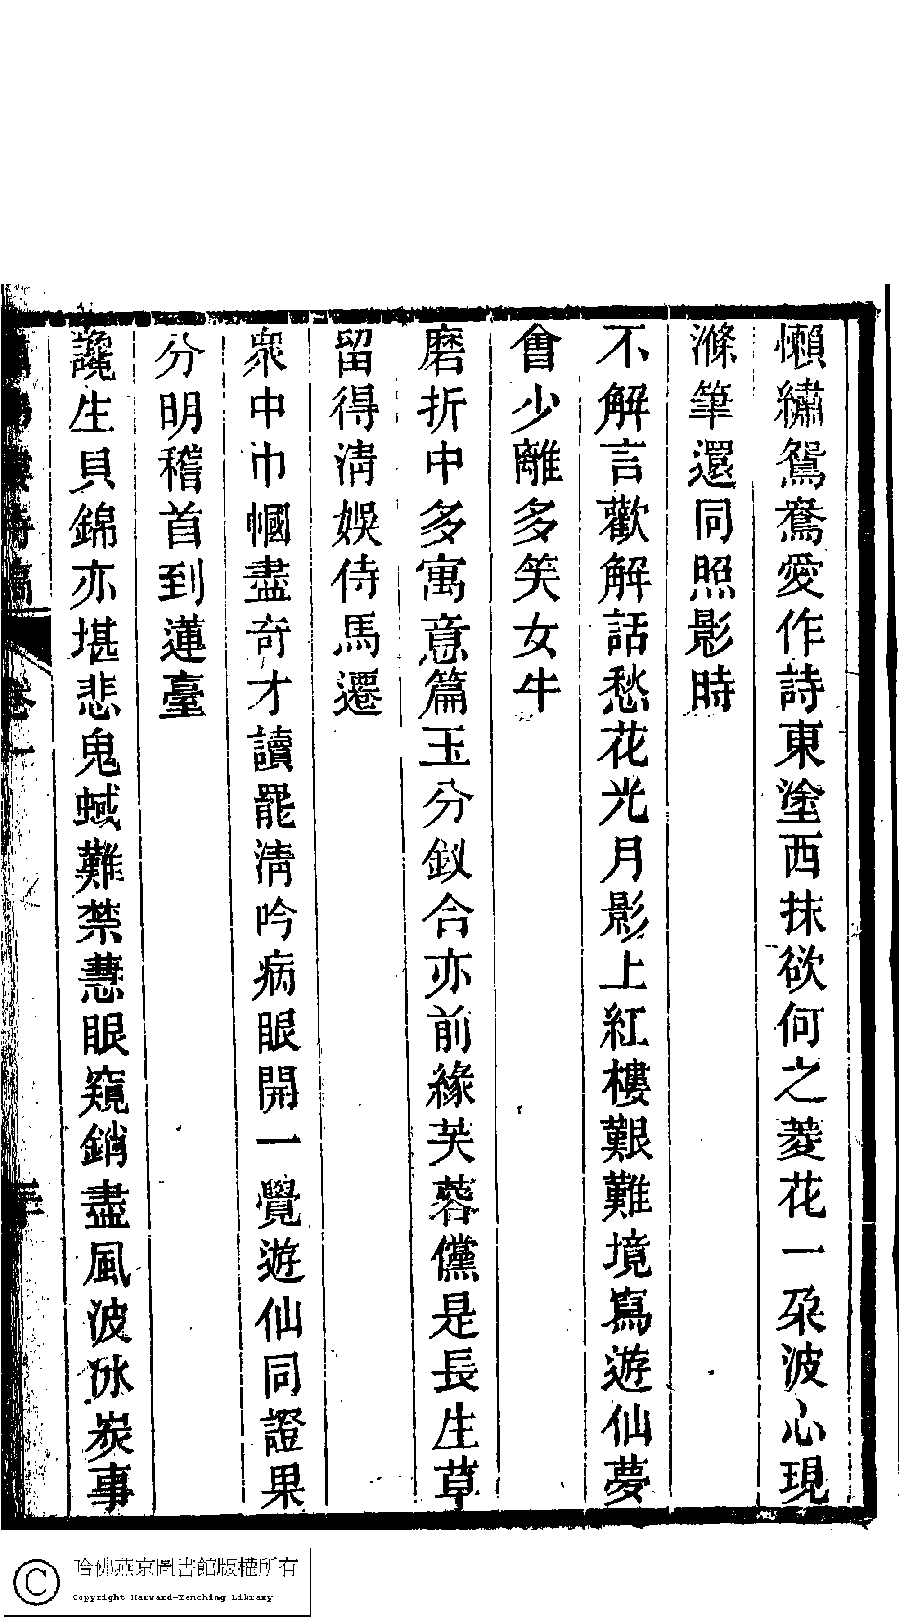 懶繡鴛鴦愛作詩東塗西抹欲何之菱花一朶波心現
滌筆還同照影時
不解言歡解話愁花光月影上紅樓艱難境寫遊仙夢
會少離多笑女牛
磨折中多寓意篇玉分釵合亦前緣芙蓉儻是長生草
留得淸娛侍馬遷
衆中巾幗盡奇才讀罷淸吟病眼開一覺遊仙同證果
分明稽首到蓮臺
讒生貝錦亦堪悲鬼蜮難禁慧眼窺銷盡風波冰炭事
詩稿 卷一
哈佛燕京圖書館版權所有
Copyright Harvard-Yenching Library